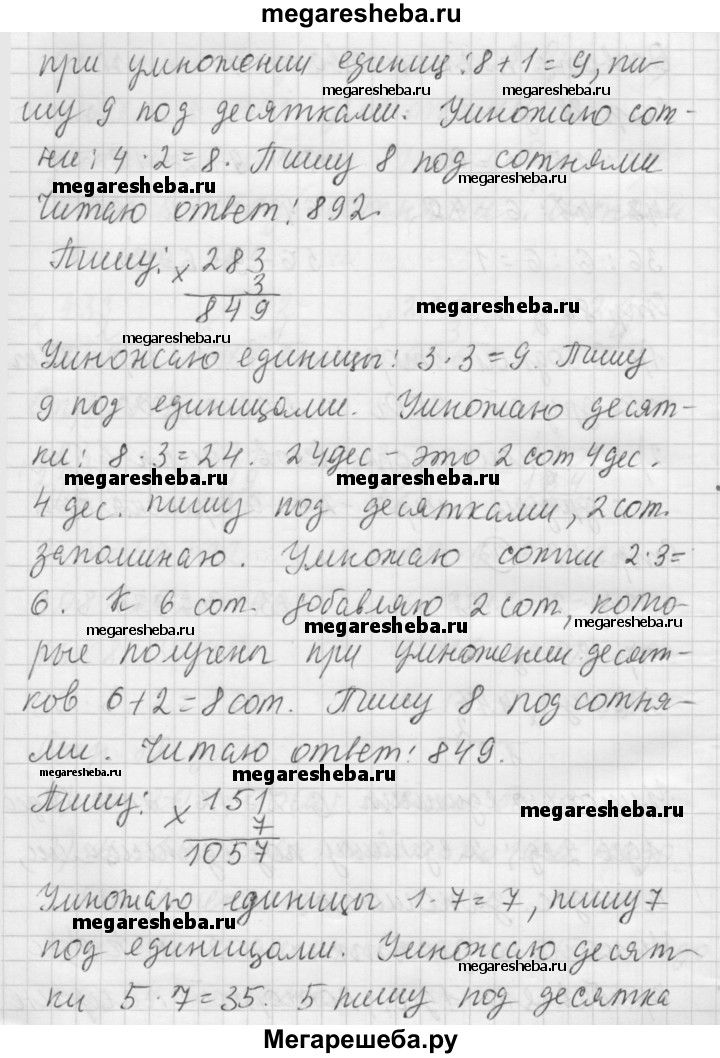 megaresheba.ru
при умножении единиц: 8+1=9, пи-
megaresheba.ru megaresheba.ru
шу 9 под десятками. Умножаю сот-
ни: 4·2=8. Пишу 8 под сотнями
megaresheba.ru megaresheba.ru
Читаю ответ: 892.
Пишу: × 283
3
849
megaresheba.ru
megaresheba.ru
Умножаю единицы: 3·3=9. Пишу
9 под единицами. Умножаю десят-
ки: 8·3=24. 24дес - это 2 сот 4дес.
megaresheba.ru megaresheba.ru
4 дес. пишу под десятками, 2 сот.
запоминаю. Умножаю сотни 2·3=
6. К 6 сот. добавляю 2 сот, кото-
megaresheba.ru megaresheba.ru megaresheba.ru
рые получены при умножении десят-
ков 6+2=8 сот. Пишу 8 под сотня-
ми. Читаю ответ: 849.
megaresheba.ru megaresheba.ru
Пишу: × 151
7
1057
megaresheba.ru
Умножаю единицы 1·7=7, пишу 7
megaresheba.ru
под единицами. Умножаю десят-
megaresheba.ru
ки 5·7=35. 5 пишу под десятка
Мегарешеба.ру